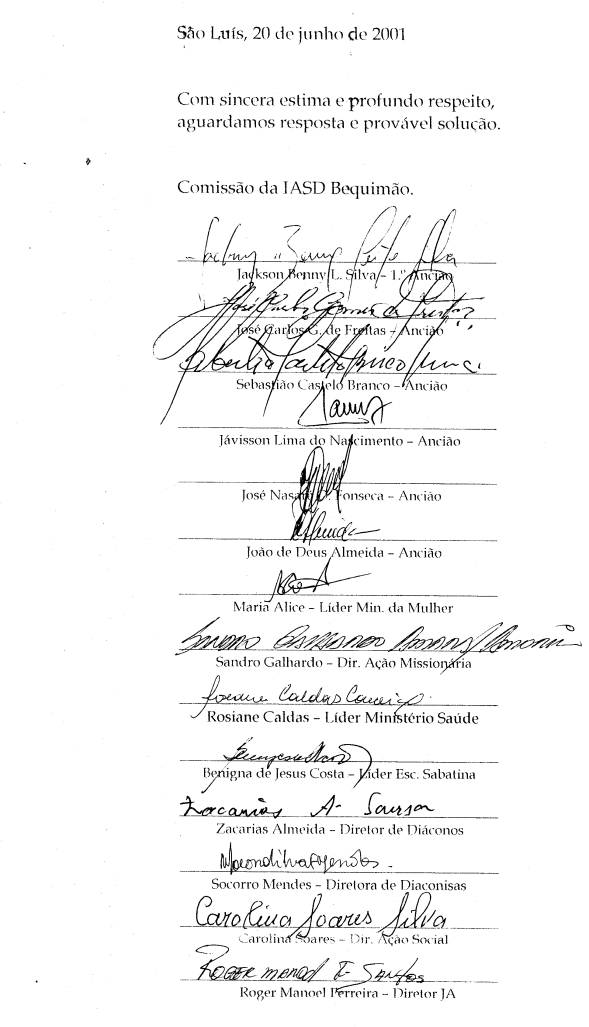 São Luís, 20 de junho de 2001
Com sincera estima e profundo respeito,
aguardamos resposta e provável solução.
Comissão da IASD Bequimão.
Jackson Benny L. Silva – 1.º Ancião
José Carlos G. de Freitas – Ancião
Sebastião Castelo Branco – Ancião
Jávisson Lima do Nascimento – Ancião
José Fonseca – Ancião
Almeida
João de Deus Almeida – Ancião
Maria Alice – Líder Min. da Mulher
Sandro Galhardo – Dir. Ação Missionária
Rosiane Caldas
Rosiane Caldas – Líder Ministério Saúde
Benigna de Jesus Costa – Líder Esc. Sabatina
Zacarias A.
Zacarias Almeida – Diretor de Diáconos
Socorro Mendes – Diretora de Diaconisas
Carolina Soares Silva
Carolina Soares – Dir. Ação Social
Roger Manoel F. Santos
Roger Manoel Ferreira – Diretor JA